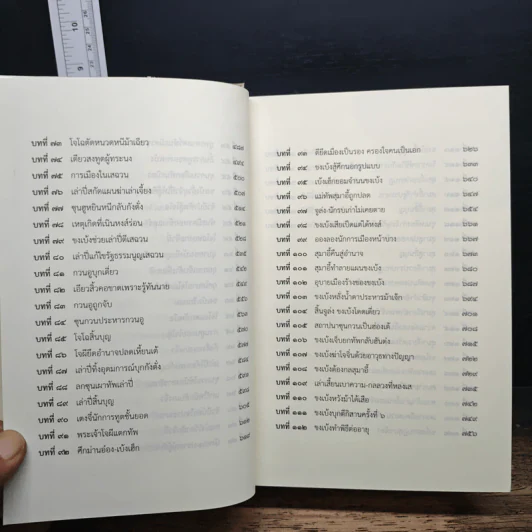 บทที่ ๗๓ โจโฉตัดหนวดหนีม้าเฉียว
บทที่ ๗๔ เตียวสงทูตผู้ทระนง
บทที่ ๗๕ การเมืองในเสฉวน
บทที่ ๗๖ เล่าปี่สกัดแผนฆ่าเล่าเจี้ยง
บทที่ ๗๗ ซุนฮูหยินหนีกลับกังตั๋ง
บทที่ ๗๘ เหตุเกิดที่เนินหงส์ร่อน
บทที่ ๗๙ ขงเบ้งช่วยเล่าปี่ตีเสฉวน
บทที่ ๘๐ เล่าปี่แก้ไขรัฐธรรมนูญเสฉวน
บทที่ ๘๑ กวนอูบุกเดี่ยว
บทที่ ๘๒ เอียวสิ้วคอขาดเพราะรู้ทันนาย
บทที่ ๘๓ กวนอูถูกจับ
บทที่ ๘๔ ซุนกวนประหารกวนอู
บทที่ ๘๕ โจโฉสิ้นบุญ
บทที่ ๘๖ โจผียึดอำนาจปลดเหี้ยนเต้
บทที่ ๘๗ เล่าปี่ทิ้งอุดมการณ์บุกกังตั๋ง
บทที่ ๘๘ ลกซุนเผาทัพเล่าปี่
บทที่ ๘๙ เล่าปี่สิ้นบุญ
บทที่ ๙๐ เตงจี๋นักการทูตชั้นยอด
บทที่ ๙๑ พระเจ้าโจผีแตกทัพ
บทที่ ๙๒ ศึกม่านอ๋อง-เบ้งเฮ็ก
บทที่ ๙๓ ตียึดเมืองเป็นรอง ครองใจคนเป็นเอก ๖๒๖
บทที่ ๙๔ ขงเบ้งสู้ศึกนอกรูปแบบ ๖๓๓
บทที่ ๙๕ เบ้งเฮ็กยอมจำนนขงเบ้ง ๖๔๐
บทที่ ๙๖ แม่ทัพสุมาอี้ถูกปลด ๖๔๗
บทที่ ๙๗ จูล่ง-นักรบเก่าไม่เคยตาย ๖๕๔
บทที่ ๙๘ ขงเบ้งเสียเป็ดแต่ได้หงส์ ๖๖๑
บทที่ ๙๙ อองลองนักการเมืองหน้าบาง ๖๖๗
บทที่ ๑๐๐ สุมาอี้คืนสู่อำนาจ ๖๗๔
บทที่ ๑๐๑ สุมาอี้ทำลายแผนขงเบ้ง ๖๘๑
บทที่ ๑๐๒ อุบายเมืองร้างของขงเบ้ง ๖๘๘
บทที่ ๑๐๓ ขงเบ้งหลั่งน้ำตาประหารม้าเจ๊ก ๖๙๔
บทที่ ๑๐๔ สิ้นจูล่ง ขงเบ้งโดดเดี่ยว ๗๐๑
บทที่ ๑๐๕ สถาปนาซุนกวนเป็นฮ่องเต้ ๗๐๘
บทที่ ๑๐๖ ขงเบ้งเจ็บยกทัพกลับฮันต๋ง
บทที่ ๑๐๗ ขงเบ้งฆ่าโจจิ๋นด้วยอาวุธทางปัญญา ๗๒๒
บทที่ ๑๐๘ ขงเบ้งต้องกลสุมาอี้
บทที่ ๑๐๙ เล่าเสี้ยนเบาความ-กลลวงที่หลงเส
บทที่ ๑๑๐ ขงเบ้งหวังม้าได้เสือ
บทที่ ๑๑๑ ขงเบ้งบุกกิสานครั้งที่ ๖ ๗๔๙
บทที่ ๑๑๒ ขงเบ้งทำพิธีต่ออายุ ๗๕๖